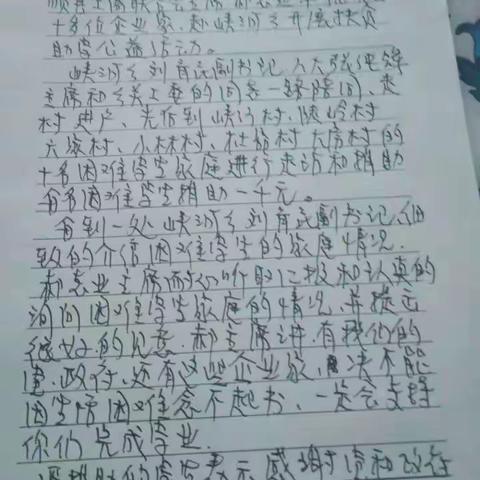 十多位企业家,赴峡河乡开展扶贫
助学公益活动。
峡河乡刘育武副书记、人大张
主席和乡关工委的同志一路陪同,走
村进户、先后到峡河村、陕岭村
六深村、小林村、杜岭村大房村的
十名困难学生家庭进行走访和捐助
每名困难学生捐助一千元。
每到一处峡河乡刘育武副书记,细
致的介绍困难学生的家庭情况.
郝志业主席听取汇报和认真的
询问困难学生家庭的情况,并提出
很好的见意.郝主席讲,有我们的
党、政府,还有这些企业家,决不能
因贫困难念不起书,一定会支持
你们完成学业.
的学生表示感谢党和政府